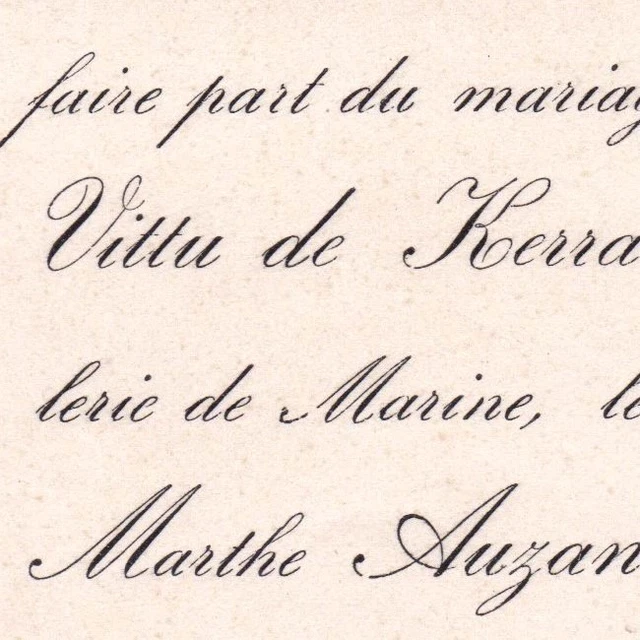 faire part du mariag
Vittu de Kerra
lerie de Marine, le
Marthe Auzan